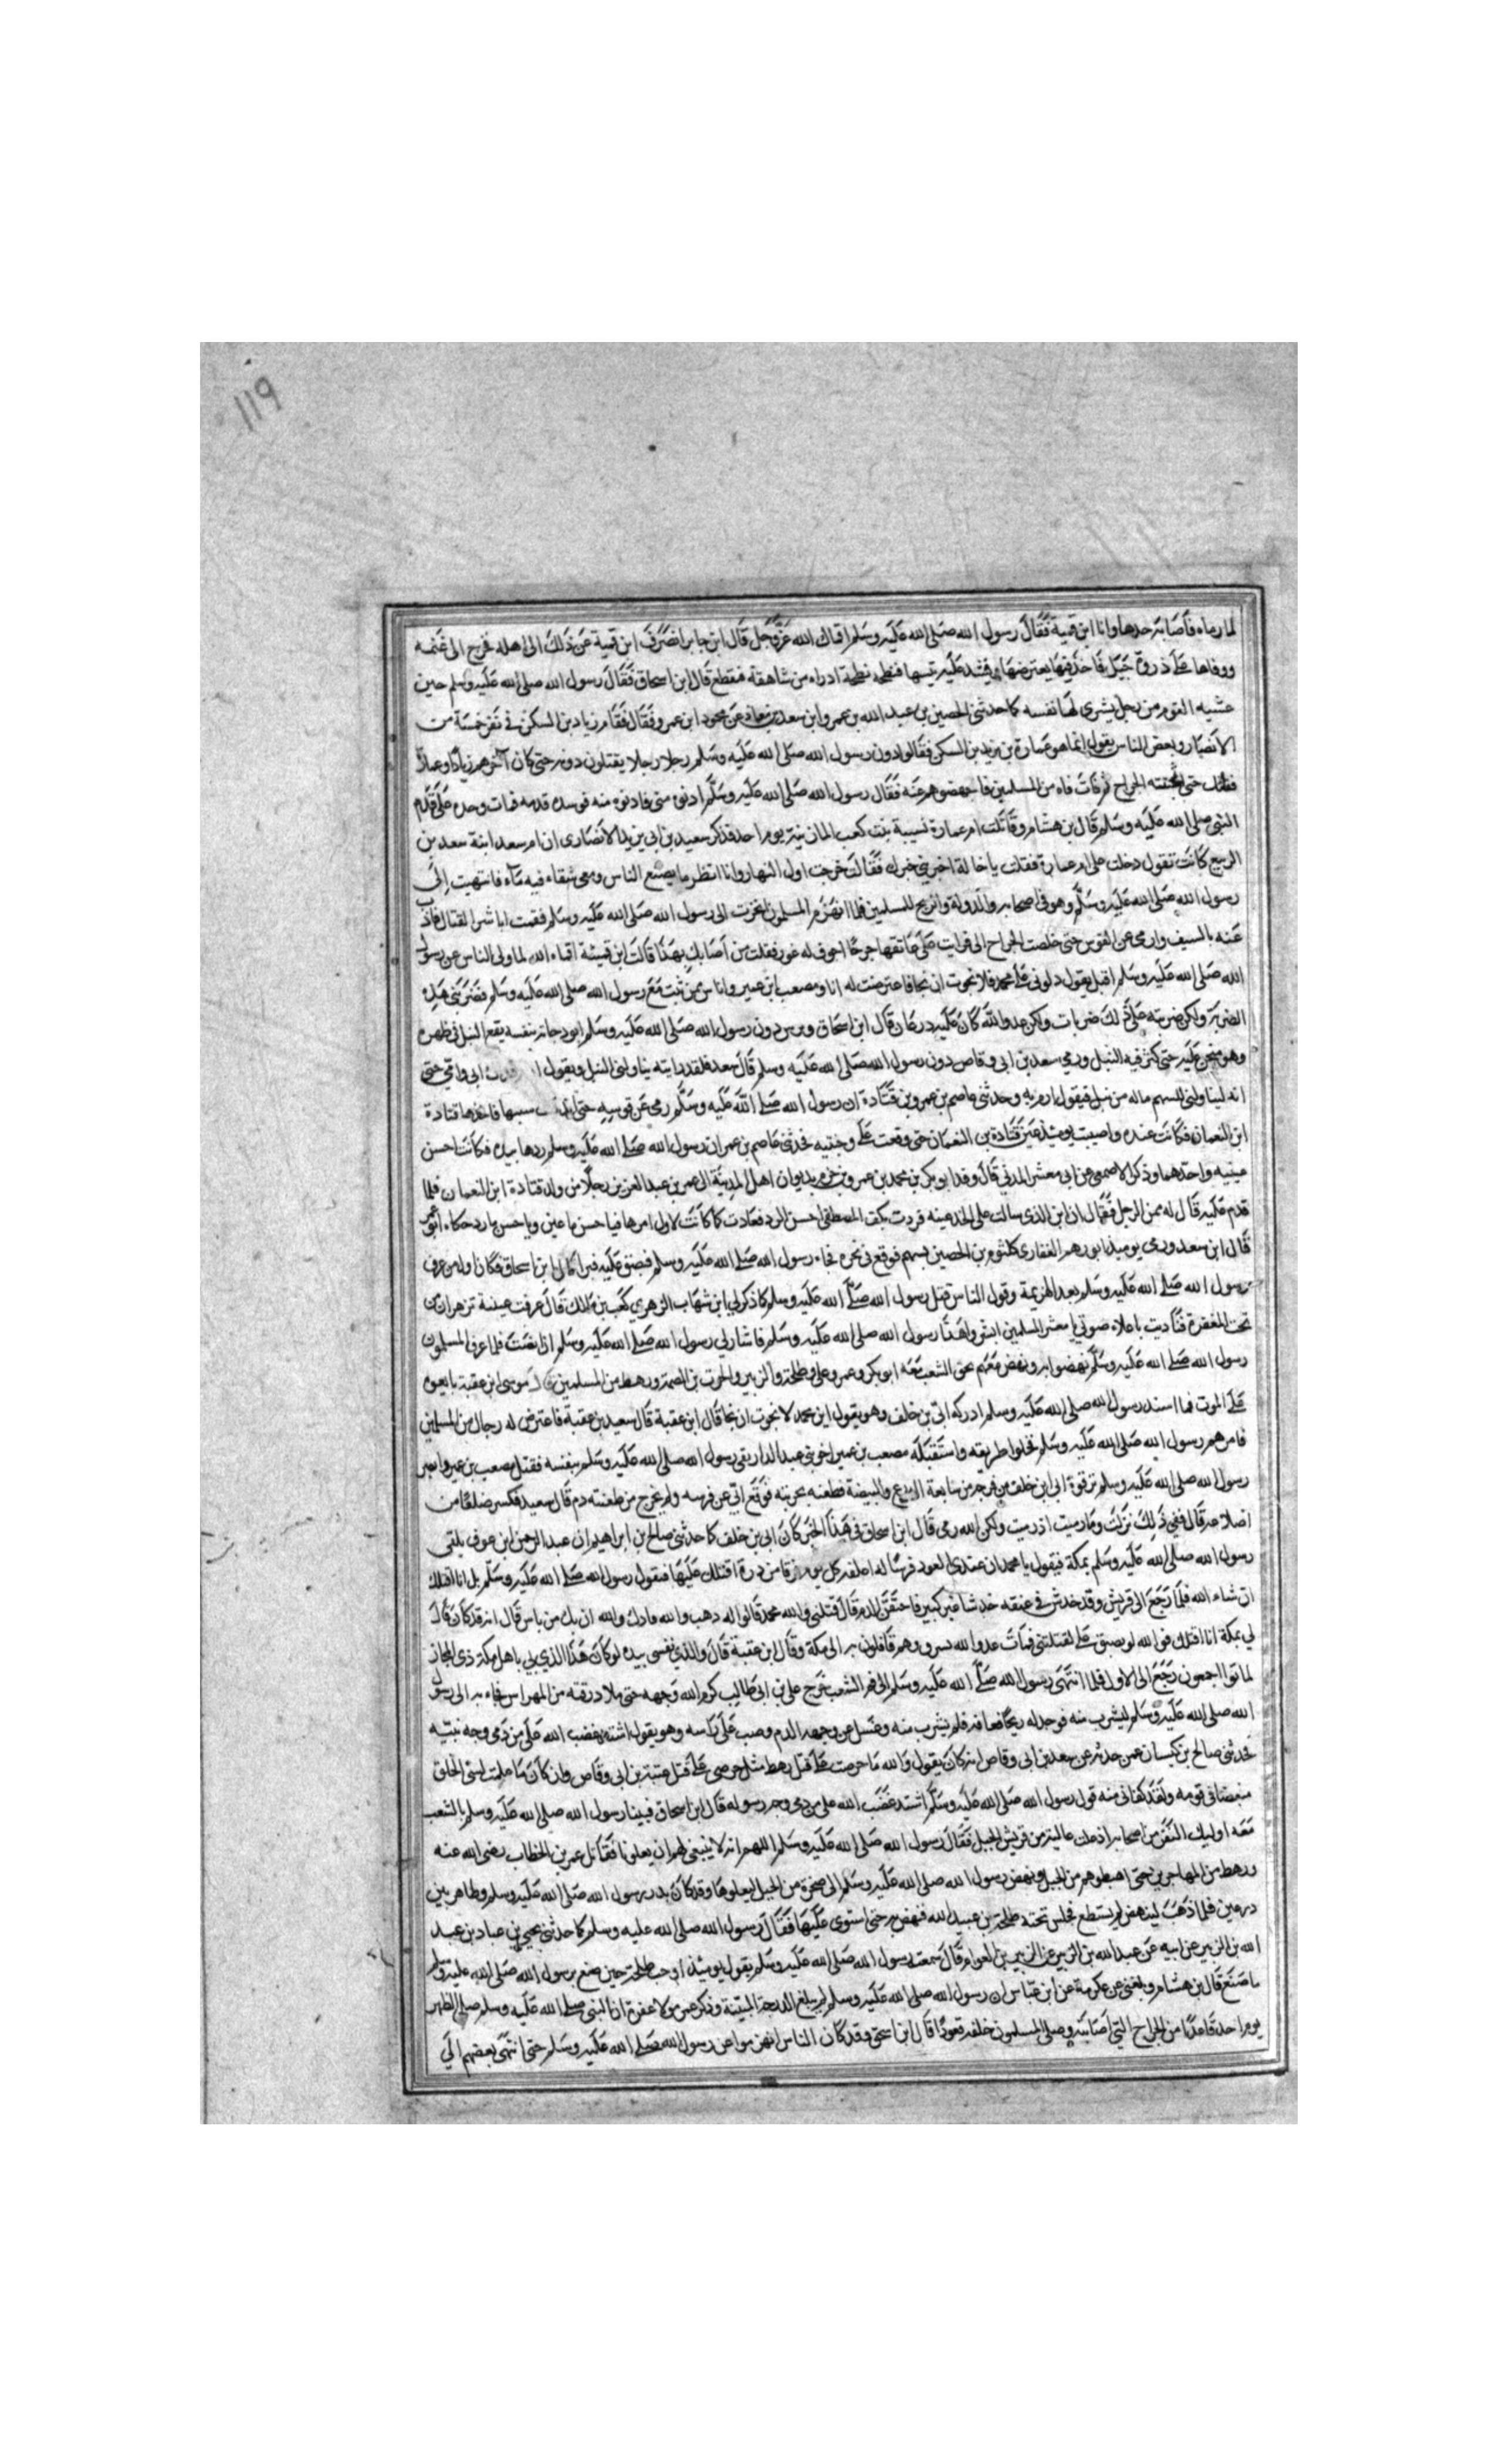 ١١٩
لما رماه فأصابته حدها وانا ابن قمية فقال رسول الله صلى الله عليه وسلم اقماك الله عز وجل قال ابن جابر انصرف ابن قمية عن ذلك الى اهله فخرج الى غنمه
ووفاها على ذروة جبل فاخذ فيها يعترضها فيشد عليه تيسها فنطحه نطحة ادراه من شاهقة فتقطع قال ابن اسحاق فقال رسول الله صلى الله عليه وسلم حين
غشيه القوم من رجل يشرى لنا نفسه كما حدثنى الحصين بن عبد الله بن عمرو ابن سعد بن معاذ عن محمود ابن عمرو فقال فقام زياد بن السكن في نفر خمسة من
الانصار وبعض الناس يقول انما هو عمارة بن يزيد بن السكن فقاتلوا دون رسول الله صلى الله عليه وسلم رجلا رجلا يقتلون دونه حتى كان آخرهم زياد او عمارة
فقاتل حتى اثخنته الجراح ثم فات فاه من المسلمين فاجهضوهم عنه فقال رسول الله صلى الله عليه وسلم ادنوه منى فادنوه منه فوسده قدمه فمات وخده على قدم
النبي صلى الله عليه وسلم قال بن هشام وقاتلت ام عمارة نسيبة بنت كعب المازنية يوم احد فذكر سعيد بن ابي زيد الانصارى ان ام سعد ابنة سعد بن
الربيع كانت تقول دخلت على ام عمارة فقلت يا خالة اخبريني خبرك فقالت خرجت اول النهار وانا انظر ما يصنع الناس ومعى سقاء فيه ماء فانتهيت إلى
رسول الله صلى الله عليه وسلم وهو في اصحابه والدولة والريح للمسلمين فلما انهزم المسلمون انحزت الى رسول الله صلى الله عليه وسلم فقمت اباشر القتال واذب
عنه بالسيف وارمى عن القوس حتى خلصت الجراح الى فرايت على عاتقها جرحا اجوف له غور فقلت من أصابك بهذا قالت ابن قميئة اقماه الله لما ولى الناس عن رسول
الله صلى الله عليه وسلم اقبل يقول دلونى على محمد فلا نجوت ان نجا فاعترضت له انا ومصعب ابن عمير واناس ممن ثبت مع رسول الله صلى الله عليه وسلم فضربني هذه
الضربة ولكن ضربته على ذلك ضربات ولكن عدو الله كان عليه درعان قال ابن اسحاق وترس دون رسول الله صلى الله عليه وسلم ابو دجانة بنفسه يقع النبل في ظهره
وهو منحن عليه حتى كثر فيه النبل ورمى سعد بن ابى وقاص دون رسول الله صلى الله عليه وسلم قال سعد فلقد رايته يناولنى النبل ويقول ارم فدك ابى وامى حتى
انه ليناولنى السهم ماله من نبل فيقول ارم به وحدثنى عاصم بن عمرو بن قتادة ان رسول الله صلى الله عليه وسلم رمى عن قوسه حتى اندقت سيتها فاخذها قتادة
ابن النعمان فكانت عنده واصيبت يومئذ عين قتادة بن النعمان حتى وقعت على وجنته فحدثني عاصم بن عمر ان رسول الله صلى الله عليه وسلم ردها بيده فكانت احسن
عينيه واحدهما وذكر الاصمعى عن ابى معشر المدنى قال وفد ابو بكر بن محمد بن عمرو بن حزم بديوان اهل المدينة الى عمر بن عبد العزيز رجلا من ولد قتادة ابن النعمان فلما
قدم عليه قال له ممن الرجل فقال انا ابن الذى سالت على الخد عينه فردت بكف المصطفى احسن الرد فعادت كما كانت لاول امرها فيا حسن ما عين ويا حسن ما رد
قال ابن سعد ورمى يوميذ ابو رهم الغفارى كلثوم بن الحصين بسهم فوقع في نحره فجاء رسول الله صلى الله عليه وسلم فبصق عليه فبرا قال ابن اسحاق فكان اول من عرف
رسول الله صلى الله عليه وسلم بعد الهزيمة وقول الناس قتل رسول الله صلى الله عليه وسلم كما ذكر لي ابن شهاب الزهري كعب بن مالك قال عرفت عينيه تزهران من
تحت المغفرة فناديت باعلا صوتي يا معشر المسلمين ابشروا هذا رسول الله صلى الله عليه وسلم فاشار لي رسول الله صلى الله عليه وسلم ان انصت فلما عرف المسلمون
رسول الله صلى الله عليه وسلم نهضوا به ونهض معهم نحو الشعب معه ابو بكر وعمر وعلى وطلحة والزبير والحرث بن الصمة ورهط من المسلمين قال موسى ابن عقبة بايعوه
على الموت فلما اسند رسول الله صلى الله عليه وسلم ادركه ابيّ بن خلف وهو يقول اين محمد لا نجوت ان نجا قال ابن عقبة قال سعيد بن عقبة فاعترض له رجال من المسلمين
فامرهم رسول الله صلى الله عليه وسلم فخلوا طريقه واستقبله مصعب بن عمير اخو بني عبد الدار يقى رسول الله صلى الله عليه وسلم بنفسه فقتل مصعب بن عمير وابصر
رسول الله صلى الله عليه وسلم ترقوة ابى ابن خلف من فرجة من سابغة الدرع والبيضة فطعنه بحربته فوقع ابيّ عن فرسه ولم يخرج من طعنته دم قال سعيد فكسر ضلعا من
اضلاعه قال ففى ذلك نزلت وما رميت اذ رميت ولكن الله رمى قال ابن اسحاق في هذا الخبر كان ابى بن خلف كما حدثنى صالح بن ابراهيم ان عبد الرحمن ابن عوف يلقى
رسول الله صلى الله عليه وسلم بمكة فيقول يا محمد ان عندى العود فرسا له اعلفه كل يوم فرقا من ذرة اقتلك عليها فيقول رسول الله صلى الله عليه وسلم بل انا اقتلك
ان شاء الله فلما رجع الى قريش وقد خدش في عنقه خدشا غير كبير فاحتقن الدم قال قتلنى والله محمد قالوا له ذهب والله فوادك والله ان بك من باس قال انه قد كان قال
لي بمكة انا اقتلك فوالله لو بصق على لقتلتني فمات عدو الله بسرف وهم قافلون به الى مكة وقال ابن عقبة قال والذي نفسى بيده لو كان هذا الذي بي باهل مكة ذى المجاز
لماتوا اجمعون رجع الى الاول فلما انتهى رسول الله صلى الله عليه وسلم الى فم الشعب خرج على بن ابى طالب كرم الله وجهه حتى ملا درقته من المهراس فجاء به الى رسول
الله صلى الله عليه وسلم ليشرب منه فوجد له ريحا فعافه فلم يشرب منه وغسل عن وجهه الدم وصب على راسه وهو يقول اشتد غضب الله على من دمى وجه نبيه
فحدثنى صالح بن كيسان عمن حدثه عن سعد بن ابى وقاص انه كان يقول والله ما حرصت على قتل رهط مثل حرصى على قتل عتبة بن ابى وقاص وان كان ما علمت لسئ الخلق
مبغضا في قومه ولقد كفانى منه قول رسول الله صلى الله عليه وسلم اشتد غضب الله على من دمى وجه رسوله قال ابن اسحاق فبينا رسول الله صلى الله عليه وسلم بالشعب
معه اوليك النفر من اصحابه اذ علت عالية من قريش الجبل فقال رسول الله صلى الله عليه وسلم اللهم انه لا ينبغى لهم ان يعلونا فقاتل عمر بن الخطاب رضى الله عنه
ورهط من المهاجرين حتى اهبطوهم من الجبل ونهض رسول الله صلى الله عليه وسلم الى صخرة من الجبل ليعلوها وقد كان بدن رسول الله صلى الله عليه وسلم وظاهر بين
درعين فلما ذهب لينهض لم يستطع فجلس تحته طلحة بن عبيد الله فنهض به حتى استوى عليها فقال رسول الله صلى الله عليه وسلم كما حدثنى يحيى بن عباد بن عبد
الله بن الزبير عن ابيه عن عبد الله بن الزبير عن الزبير بن العوام قال سمعت رسول الله صلى الله عليه وسلم يقول يومئذ اوجب طلحة حين صنع برسول الله صلى الله عليه وسلم
ما صنع قال بن هشام وبلغنى عن عكرمة عن ابن عباس ان رسول الله صلى الله عليه وسلم لم يبلغ الدرجة المبنية وذكر عمر مولا غفرة ان النبى صلى الله عليه وسلم صلى الظهر
يوم احد قاعدا من الجراح التي اصابته وصلى المسلمون خلفه قعودا قال ابن اسحق وقد كان الناس انهزموا عن رسول الله صلى الله عليه وسلم حتى انتهى بعضهم الى